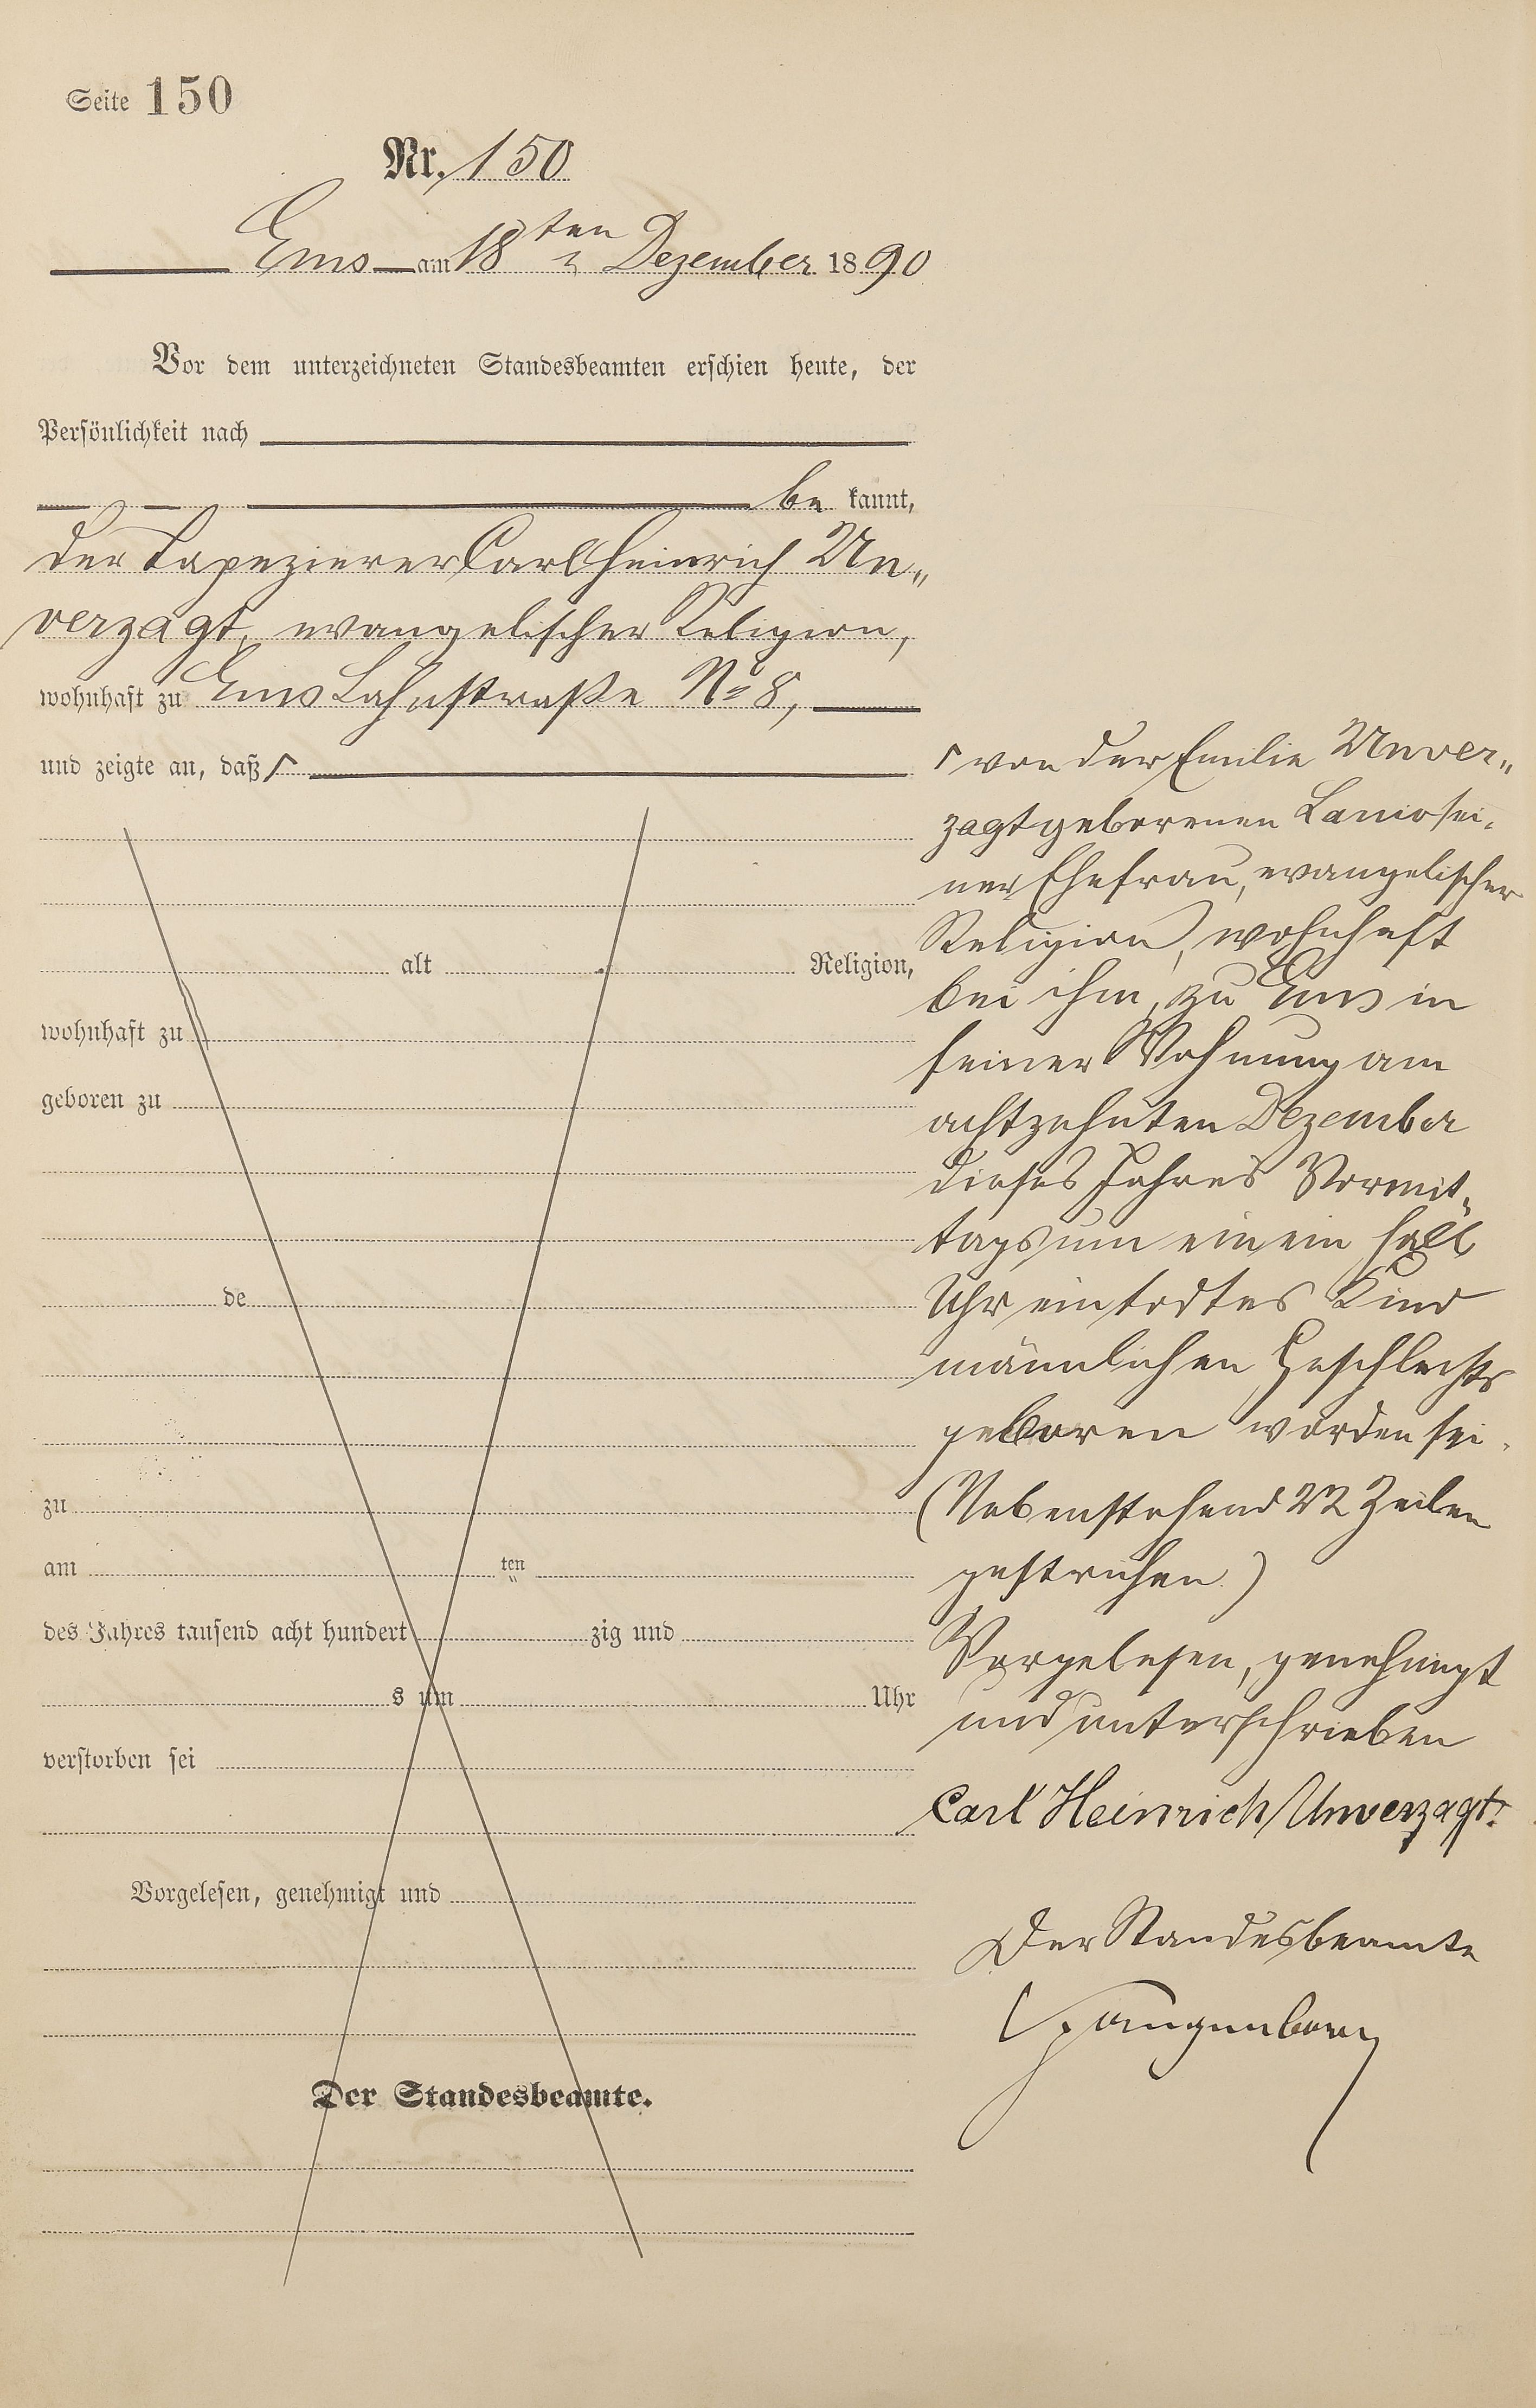 Seite 150
Nr. 150
Ems am 18ten Dezember 1890
Vor dem unterzeichneten Standesbeamten erschien heute, der
Persönlichkeit nach
be kannt,
der Tapezierer Carl Heinrich Un„
verzagt, evangelischer Religion,
wohnhaft zu Ems Lahnstraße No 8,
und zeigte an, daß ┌
┌ von der Emilie Unver„
zagt geborenen sei„
ner Ehefrau, evangelischer
Religion, wohnhaft
bei ihm, zu Ems in
seiner Wohnung am
achtzehnten Dezember
dieses Jahres Vormit„
tags um ein ein halb
Uhr ein todtes Kind
männlichen Geschlechts
geboren worden sei.
(Nebenstehend 22 Zeilen
gestrichen.)
Vorgelesen, genehmigt
und unterschrieben
Carl Heinrich Unverzagt.
Der Standesbeamte
Spangenberg
alt Religion,
wohnhaft zu
geboren zu
de
zu
am ten
des Jahres tausend acht hundert zig und
s um Uhr
verstorben sei
Vorgelesen, genehmigt und
Der Standesbeamte.